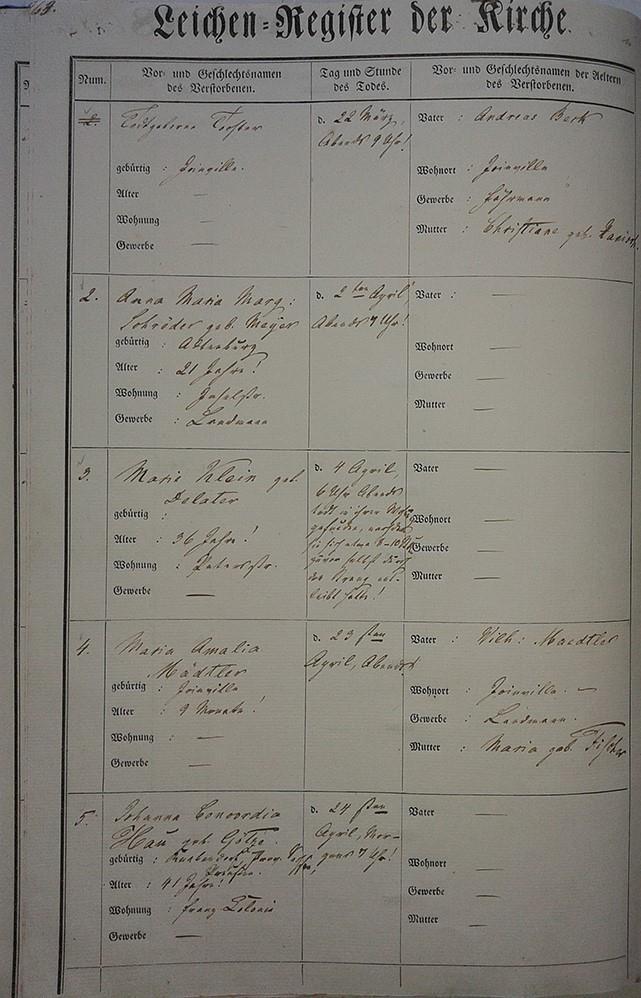 Leichen-Register der Kirche
Num.
Vor- und Geschlechtsnamen
des Verstorbenen.
Tag und Stunde
des Todes.
Vor- und Geschlechtsnamen der Aeltern
des Verstorbenen.
Todtgeborne Tochter
gebürtig : Joinville.
Alter —
Wohnung —
Gewerbe : —
d. 22 März,
Abends 9 Uhr!
Vater : Andreas Berk
Wohnort : Joinville
Gewerbe : Fuhrmann
Mutter : Christiane geb.
2. Anna Maria Marg:
Schröder geb. Meyer
gebürtig : Altenburg
Alter : 21 Jahre!
Wohnung : Inselstr.
Gewerbe : Landmann
d. 2ten April
Abends 7 Uhr!
Vater : —
Wohnort —
Gewerbe —
Mutter —
3. Marie Klein geb.
Delater
gebürtig :
Alter : 36 Jahr!
Wohnung : Peterstr.
Gewerbe —
d. 4 April,
6 Uhr Abends
todt in ihrer
gefunden, nachdem
sie sich etwa 8-10
zuvor selbst durch
den Strang ent-
leibt hatte!
Vater —
Wohnort —
Gewerbe —
Mutter —
4. Maria Amalia
Mädtler
gebürtig : Joinville
Alter : 9 Monate!
Wohnung : —
Gewerbe : —
d. 23sten
April, Abends
Vater : Wilh: Maedtler
Wohnort : Joinville. —
Gewerbe : Landmann.
Mutter : Maria geb. Fischer
5. Johanna Concordia
Hau geb. Götze.
gebürtig : Prov.
Preußen.
Alter : 41 Jahre!
Wohnung : franz. Colonie
Gewerbe —
d. 24sten
April, Mor-
gens 7 Uhr!
Vater —
Wohnort —
Gewerbe —
Mutter —